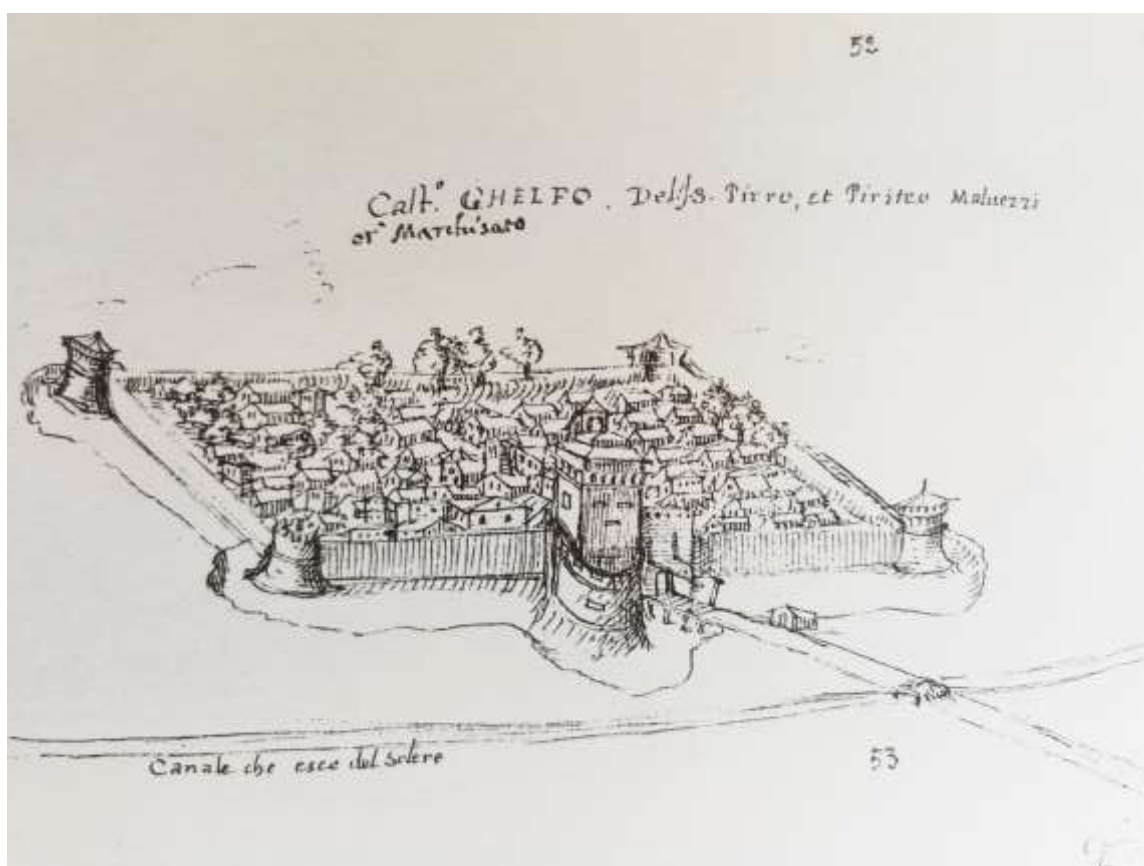 52
Cast.º GHELFO. Del S. Pirro, et Piriteo Maluezzi
or Marchisato
Canale che esce del Solere
53